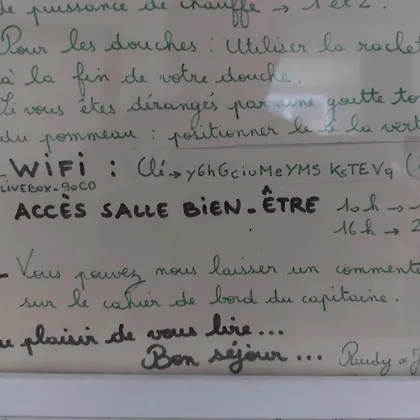 de puissance de chauffe → 1 et 2.
Pour les douches : Utiliser la raclet
à la fin de votre douche.
Si vous êtes dérangés par une goutte to
du pommeau : positionner le à la vert
- WiFi : Clé → y6hGciuMeYM5 KsTEV9 (
LIVEBOX-90C0
ACCÈS SALLE BIEN-ÊTRE 10h →
16h → 2
- Vous pouvez nous laisser un comment
sur le cahier de bord du capitaine.
u plaisir de vous lire...
Bon séjour... Rudy